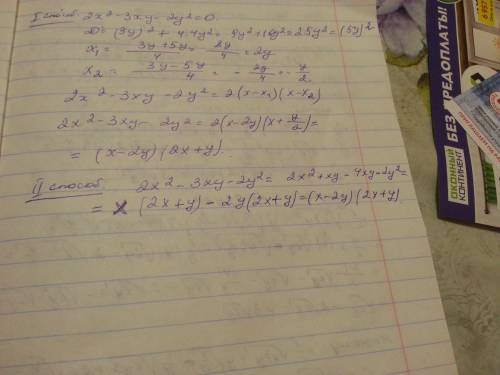 I способ. 2x²-3xy-2y²=0.
D=(3y)²+4·4y²=9y²+16y²=25y²=(5y)²
x₁=(3y+5y)/4=8y/4=2y
x₂=(3y-5y)/4=-2y/4=-y/2
2x²-3xy-2y²=2(x-x₁)(x-x₂)
2x²-3xy-2y²=2(x-2y)(x+y/2)=
=(x-2y)(2x+y).
II способ. 2x²-3xy-2y²=2x²+xy-4xy-2y²=
=x(2x+y)-2y(2x+y)=(x-2y)(2x+y)
ОКОННЫЙ
КОНТИНЕНТ
БЕЗ ПРЕДОПЛАТЫ!